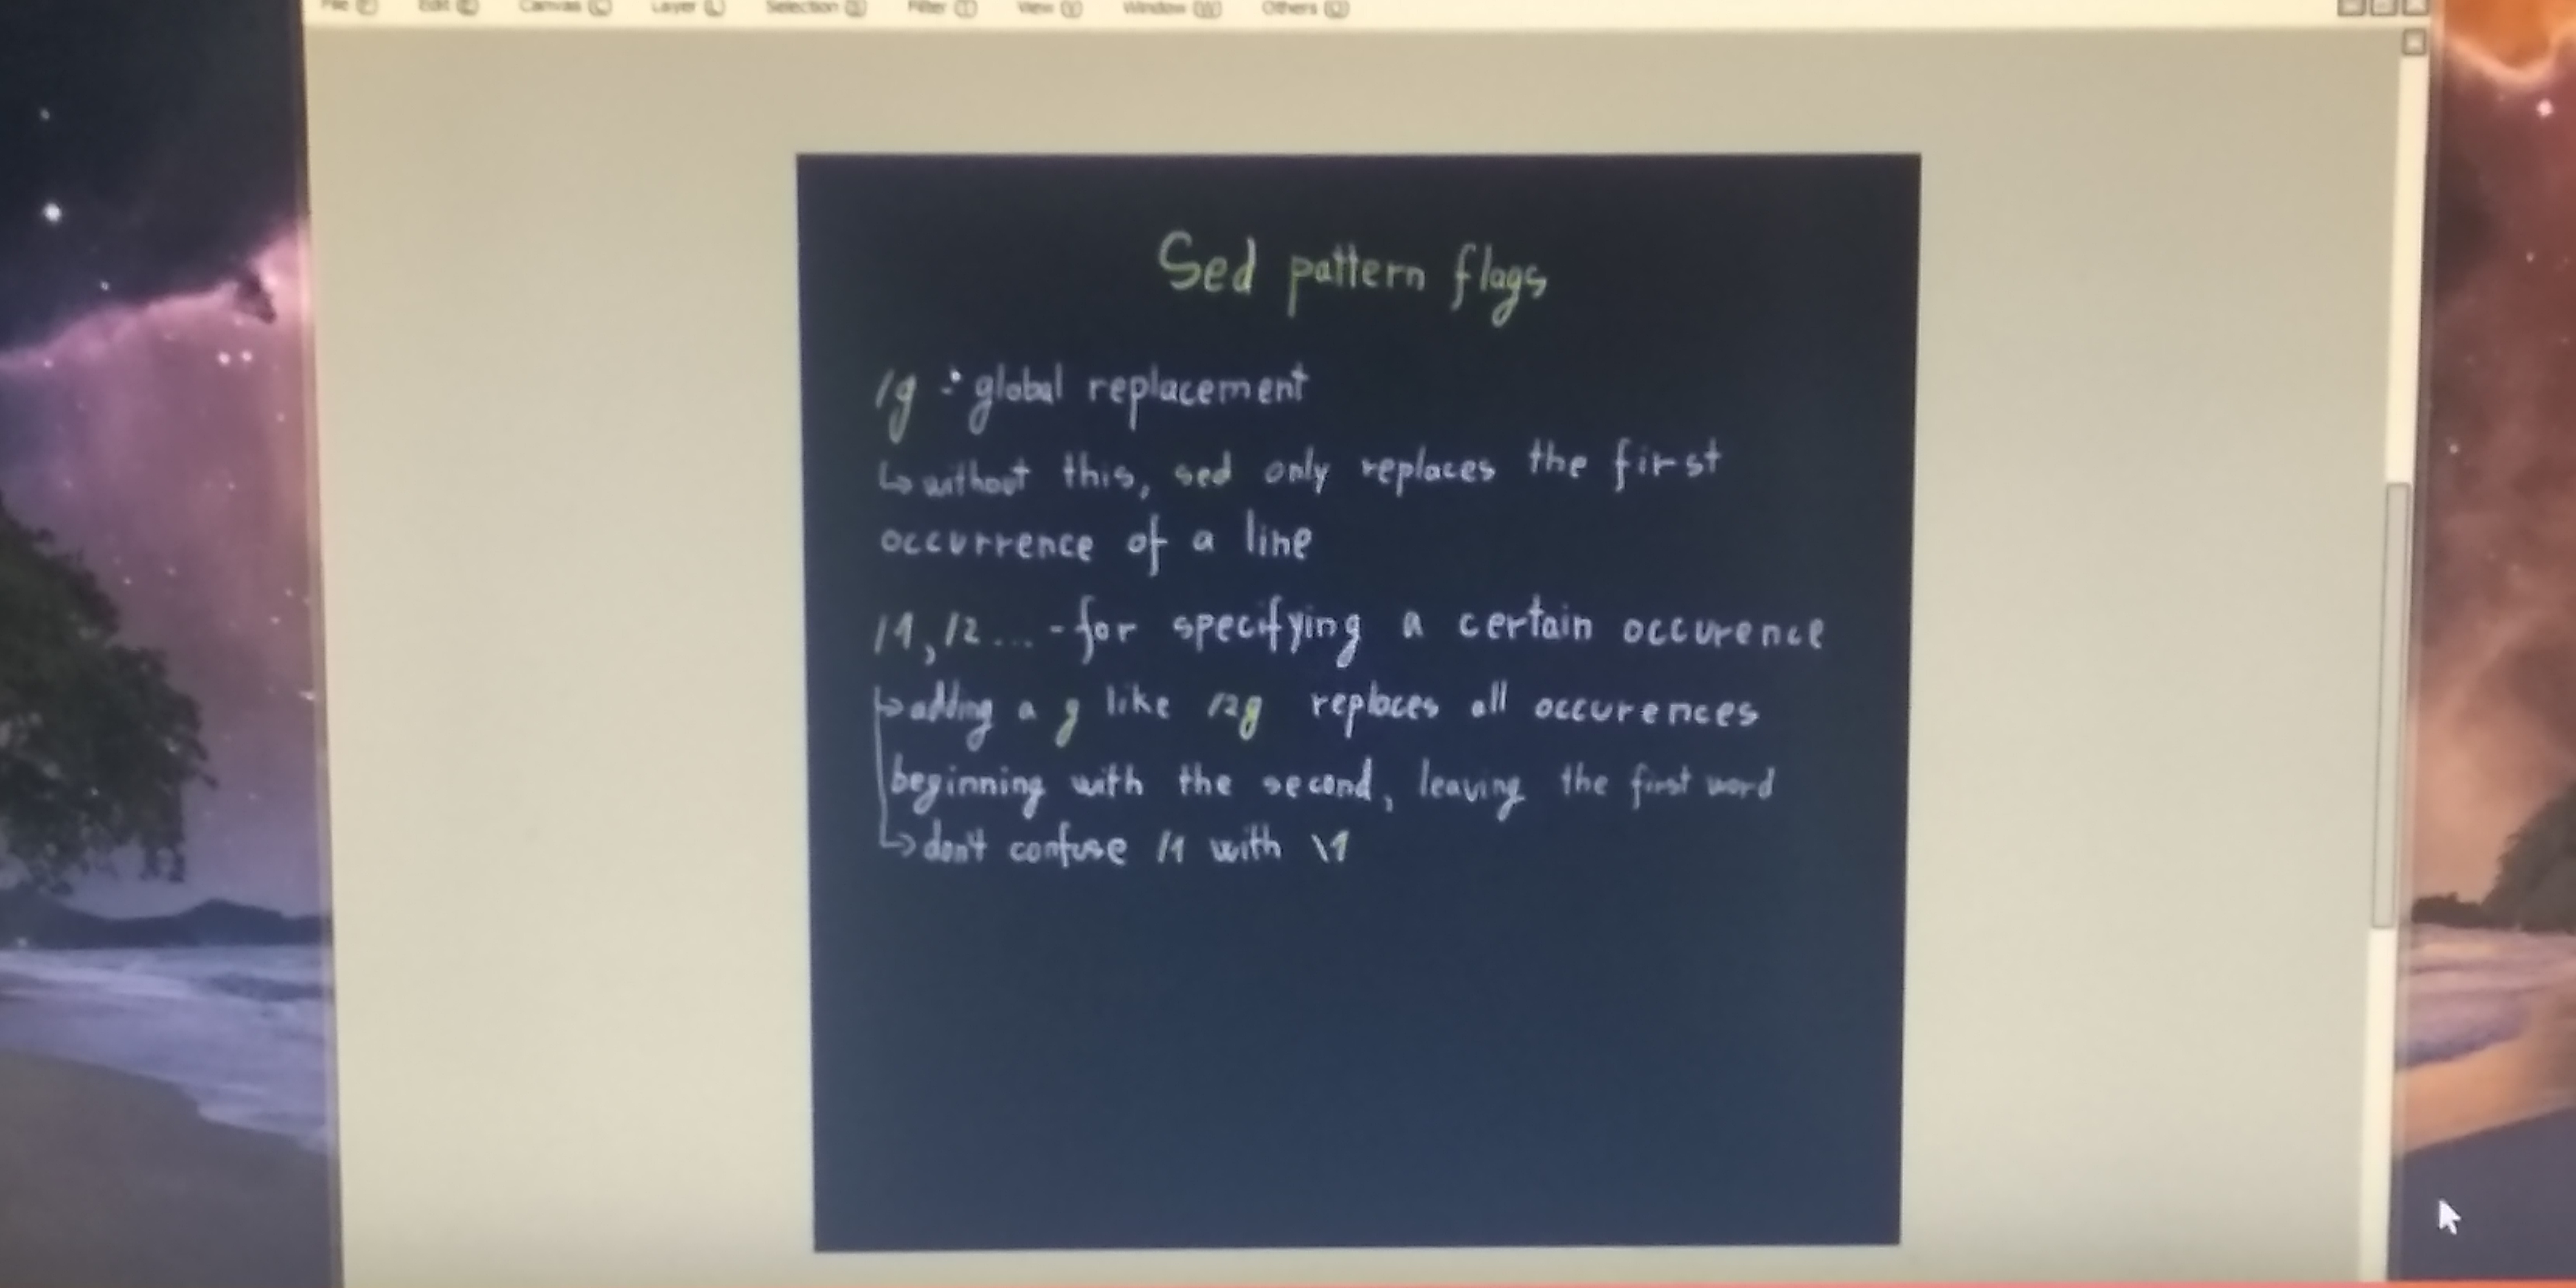 File (F) Edit (E) Canvas (C) Layer (L) Selection (S) Filter (T) View (V) Window (W) Others (O)
Sed pattern flags
/g : global replacement
↳ without this, sed only replaces the first
occurrence of a line
/1, /2... - for specifying a certain occurence
↳ adding a g like /2g replaces all occurences
beginning with the second, leaving the first word
↳ don't confuse /1 with \1